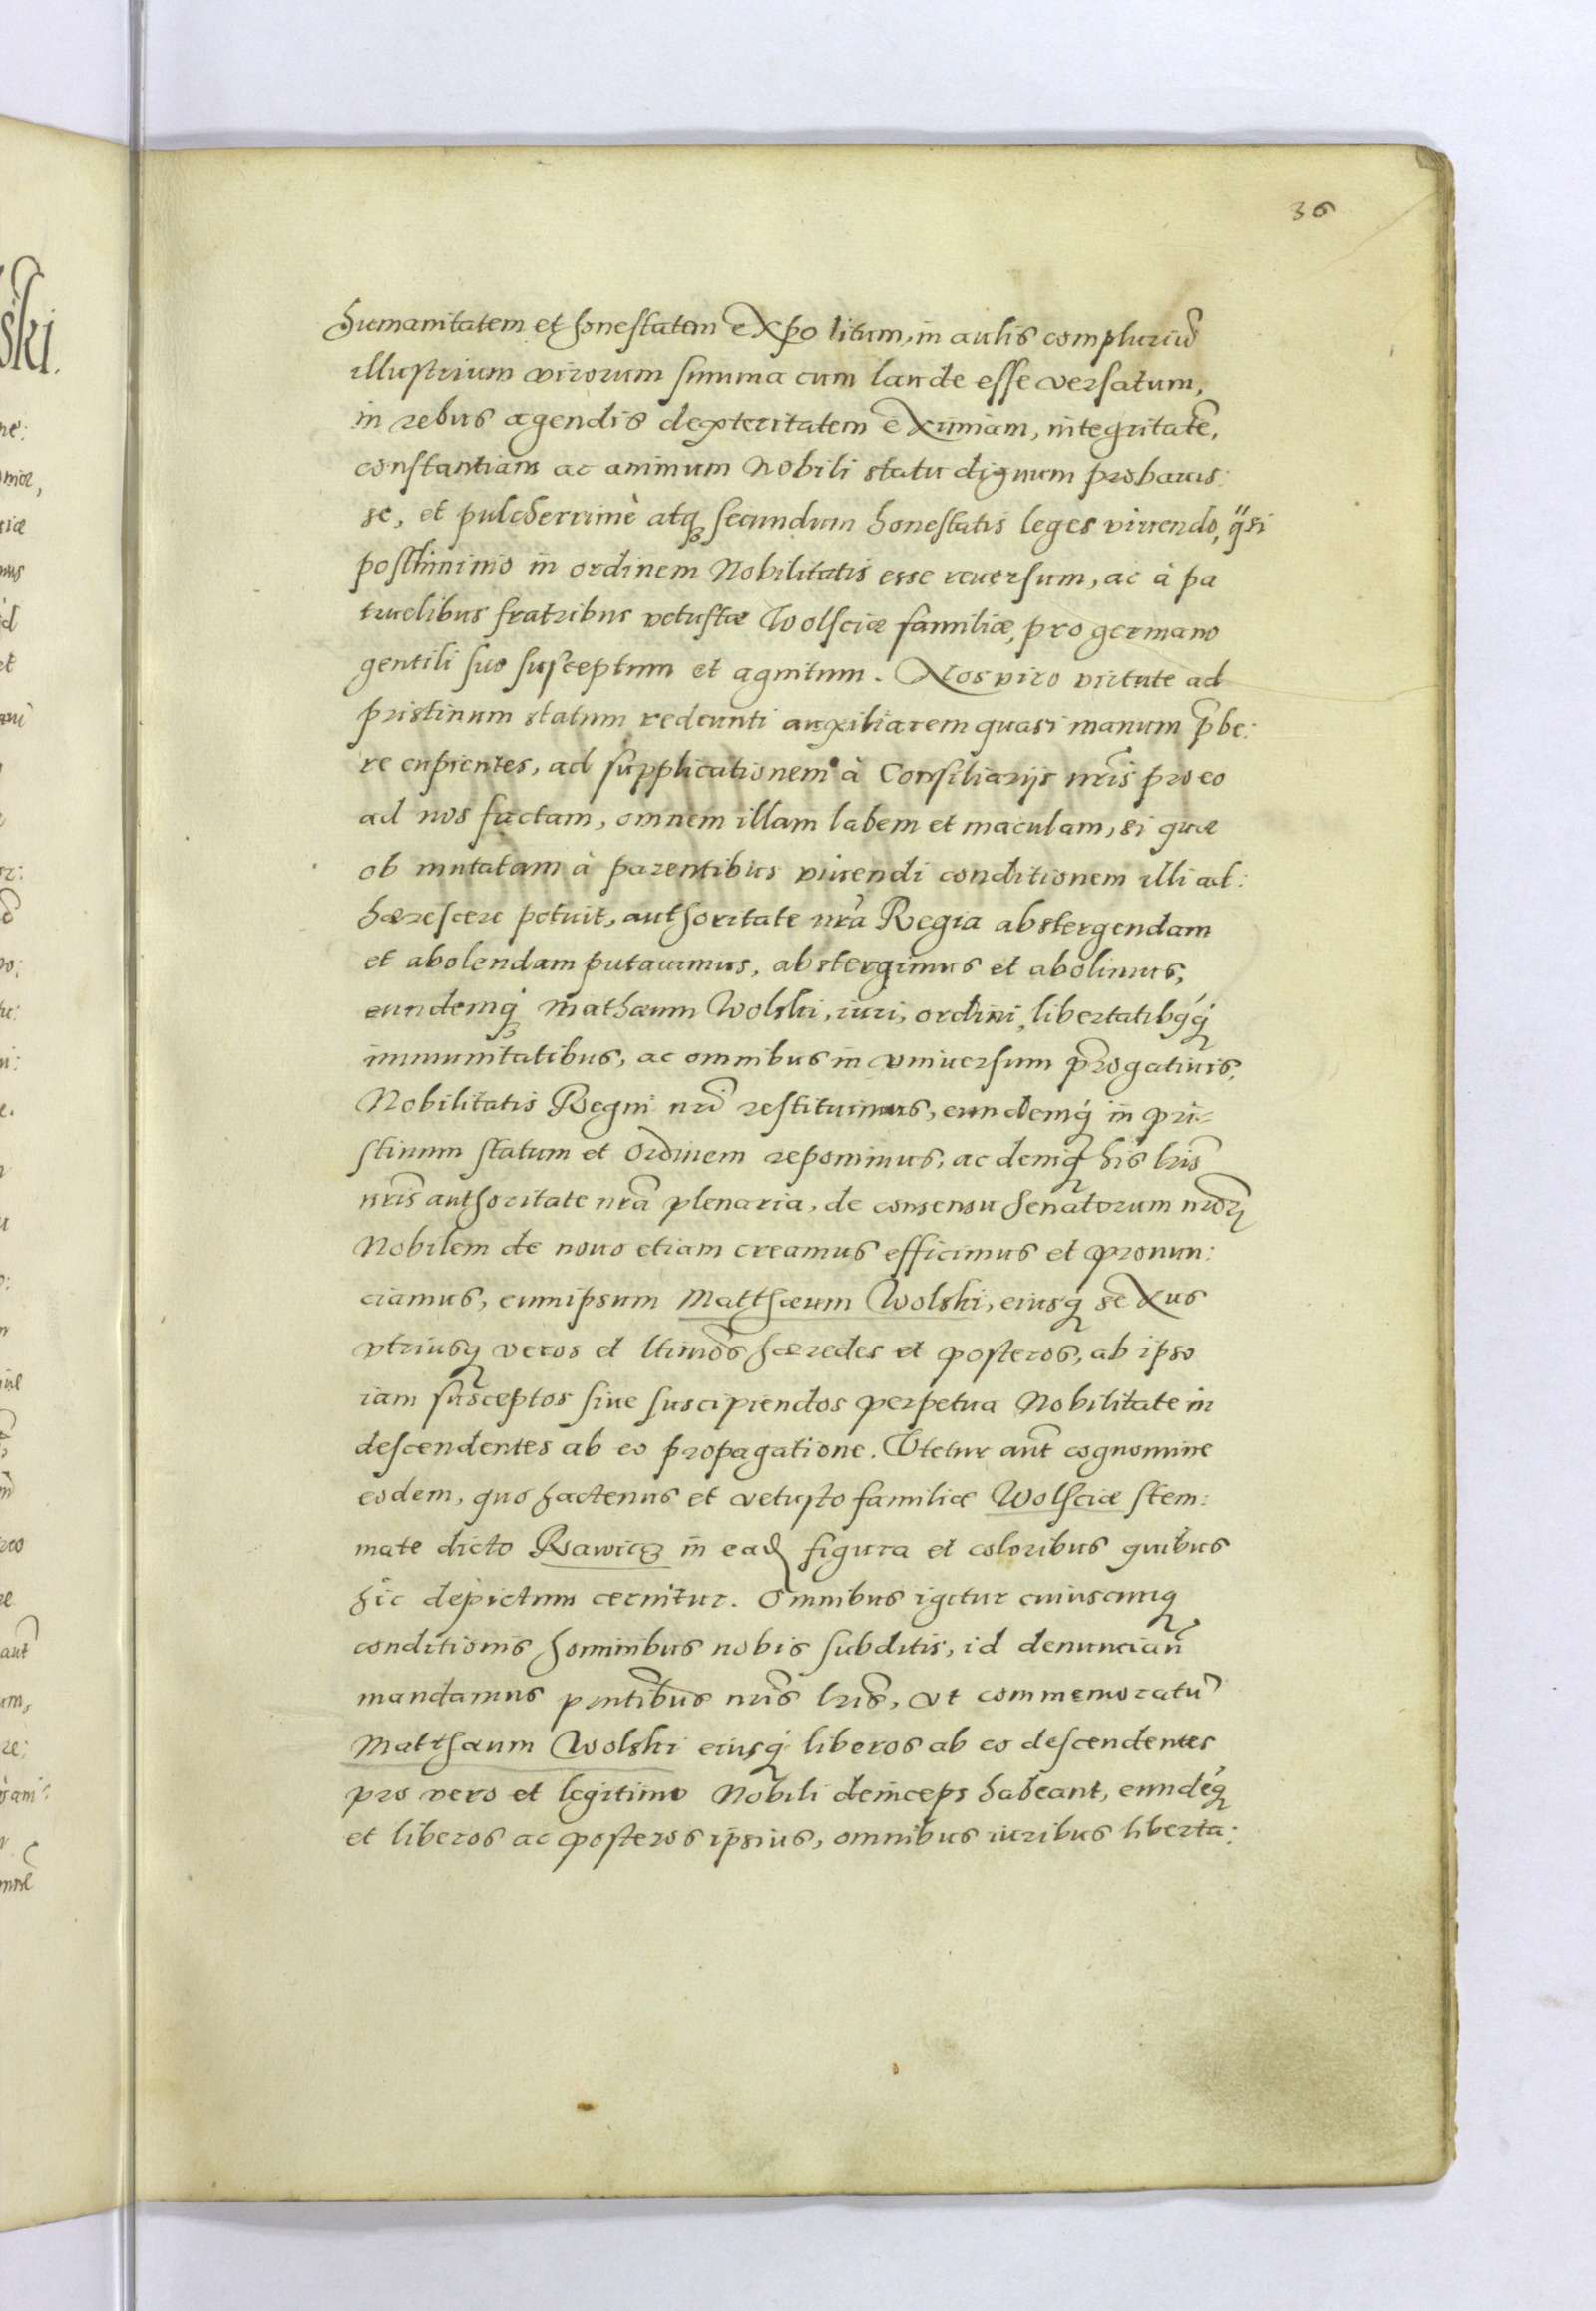 36
humanitatem et honestatem expolitum, in aulis compluriũ
illustrium virorum summa cum laude esse versatum,
in rebus agendis dexteritatem eximiam, integritatẽ,
constantiam ac animum Nobili statu dignum probauis:
se, et pulcherrimè atq̨ secundum honestatis leges viuendo, q̃si
postliminio in ordinem Nobilitatis esse reuersum, ac à pa
truelibus fratribus vetustæ Wolsciæ familiæ, pro germano
gentili suo susceptum et agnitum. Nos viro virtute ad
pristinum statum redeunti auxiliarem quasi manum p̃be:
re cupientes, ad supplicationem à Consiliarijs nr̃is pro eo
ad nos factam, omnem illam labem et maculam, si quæ
ob mutatam à parentibus viuendi conditionem illi ad:
hærescere potuit, authoritate nr̃a Regia abstergendam
et abolendam putauimus, abstergimus et abolimus,
eundemq́ Mathæum Wolski, iuri, ordini, libertatibq́q́
immunitatibus, ac omnibus in vniuersum p̃rogatiuis,
Nobilitatis Regni nr̃i restituimus, eundemq́ in pri-
stinum statum et ordinem reponimus, ac deniq̨ his lr̃is
nr̃is authoritate nr̃a plenaria, de consensu Senatorum nr̃orꝝ
Nobilem de nouo etiam creamus efficimus et pronun:
ciamus, eumipsum Matthæum Wolski, eiusq́ sexus
vtriusq́ veros et ltimõs hæredes et posteros, ab ipso
iam susceptos siue suscipiendos perpetua Nobilitate in
descendentes ab eo propagatione. Vtetur aũt cognomine
eodem, quo hactenus et vetusto familiæ Wolsciæ stem:
mate dicto Rawicz in eadꝫ figura et coloribus quibus
hîc depictum cernitur. Omnibus igitur cuiuscunq̨
conditionis hominibus nobis subditis, id denunciañ
mandamus pñtibus nr̃is lr̃is, vt commemoratũ
Matthæum Wolski eiusq́ liberos ab eo descendentes
pro vero et legitimo Nobili deinceps habeant, eundẽq́
et liberos ac posteros ipsius, omnibus iuribus liberta: